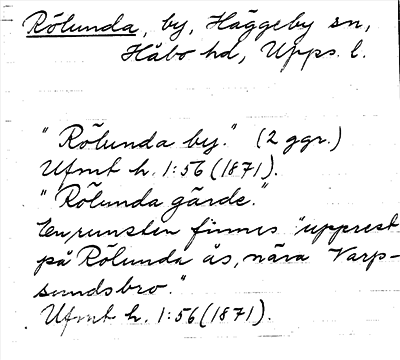 Rölunda, by, Häggeby sn,
Håbo hd, Upps. l.
"Rölunda by." (2 ggr.)
Ufmt h. 1:56 (1871).
"Rölunda gärde."
En runsten finnes "upprest
på Rölunda ås, nära Varp-
sundsbro."
Ufmt h. 1:56 (1871).